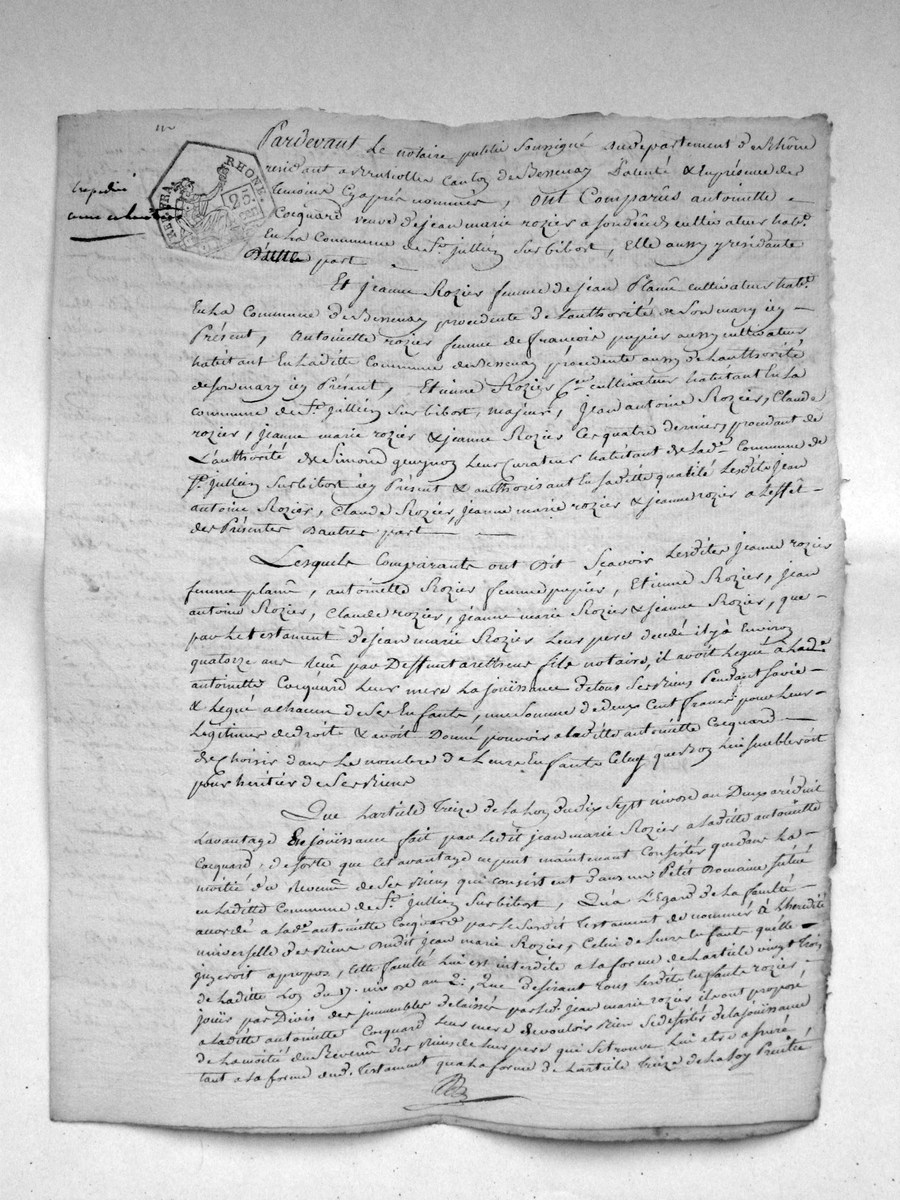 RHONE.
REP. FRA
Pardevant Le notaire public Soussigné audepartement du Rhône
residant a Brussolles Canton de Bessenay Patenté & En présence des
temoins Cyaprés nommés, ont Comparus antoinette
Cocquard veuve de jean marie rozier a Son décés cultivateur habt.
En La Commune de St. jullien Sur bibost, Elle aussy y residante
D'une part
Et jeanne Rozier femme de jean Plané cultivateur habt.
En La Commune de Bessenay procedente de Lauthorité de Son mary icy
Présent, antoinette rozier femme de françois pupier aussy cultivateur
habitant En Laditte Commune de Bessenay, procedante aussy de Lauthorité
de Son mary icy Présent, Etienne Rozier cultivateur habitant En La
commune de St. jullien Sur bibost, majeur, jean antoine Rozier, Claude
rozier, jeanne marie rozier & jeanne Rozier Ces quatre derniers procedant de
L'authorité de Simond Leur Curateur habitant de Lade. Commune de
St. jullien Sur bibost icy Présent & authorisant En Saditte qualité Lesdits jean
antoine Rozier, Claude Rozier, jeanne marie rozier & jeanne rozier a L'effêt
des Présentes Dautres part
Lesquels Comparants ont dit Scavoir Lesdites jeanne rozier
femme plané, antoinette Rozier femme pupier, Etienne Rozier, jean
antoine Rozier, Claude rozier, jeanne marie Rozier & jeanne Rozier, que
par Le testament de jean marie Rozier Leur pere décédé il y à Environ
quatorze ans Reçu par Deffunt fils notaire, il avoit Legué à Lade.
antoinette Cocquard Leur mere La jouïssance de tous Ses Biens Pendant Sa vie
& Legué a chacun de Ses Enfants, une Somme de deux Cent francs pour Leur
Légitimes de droits & avoit Donné pouvoir a laditte antoinette Cocquard
de Choisir dans Le nombre de Leurs Enfants Celuy que bon Lui Sembleroit
pour heritier de Ses Biens
Que Larticle Treize de La Loy du dix Sept nivose an Deux a réduit
Lavantage En jouïssance fait par Ledit jean marie Rozier a Laditte antoinette
Cocquard, de Sorte que Cet avantage ne peut maintenant Consister que dans La
moitié du Revenu de Ses Biens qui consistent dans un Petit Domaine Situé
en Laditte Commune de St. jullien Sur bibost, Qu'a L'Egard de La faculté
accordé a lade. antoinette Cocquard par Le Susdit Testament de nommer à L'heredité
universelle des Biens Dudit jean marie Rozier, Celui de Leurs Enfants quelle
jugeroit apropos, Cette faculté Lui est interdite a la forme de Larticle vingt trois
de Laditte Loy du 17. nivose an 2e., Que désirant tous Lesdits Enfants rozier
jouïr par Divis des jmmeubles délaissés par led. jean marie rozier ils ont proposé
a Laditte antoinette Cocquard Leur mere de vouloir Bien Se désister de La jouïssance
de La moitié du Revenu des Biens de Leur pere qui Se trouve Lui etre assuré
tant a la forme dud. Testament qua La forme de Larticle Treize de La Loy Précitée